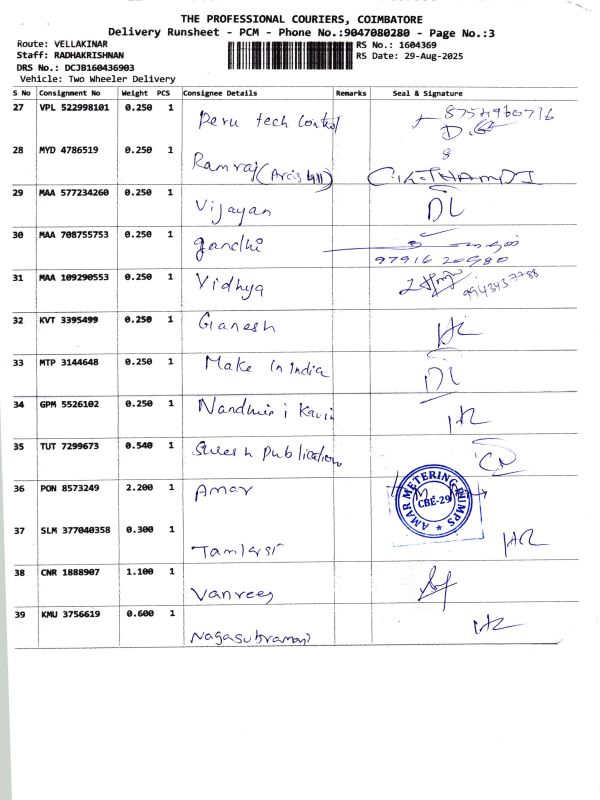 THE PROFESSIONAL COURIERS, COIMBATORE
Delivery Runsheet - PCM - Phone No.:9047080280 - Page No.:3
Route: VELLAKINAR RS No.: 1604369
Staff: RADHAKRISHNAN RS Date: 29-Aug-2025
DRS No.: DCJB160436903
Vehicle: Two Wheeler Delivery
S No Consignment No Weight PCS Consignee Details Remarks Seal & Signature
27 VPL 522998101 0.250 1 Peru tech Control
28 MYD 4786519 0.250 1 Ramraj C.K.THAMDI
29 MAA 577234260 0.250 1 Vijayan DL
30 MAA 708755753 0.250 1 gandhi
97916 20980
31 MAA 109290553 0.250 1 Vidhya
32 KVT 3395499 0.250 1 Ganesh
33 MTP 3144648 0.250 1 Make in india DL
34 GPM 5526102 0.250 1 Nandhini Kavin
35 TUT 7299673 0.540 1 Suresh Publication
36 PON 8573249 2.200 1 Amar AMAR METERING PUMPS CBE-29
37 SLM 377040358 0.300 1
38 CNR 1888907 1.100 1 Vanrees
39 KMU 3756619 0.600 1 Nagasubramani